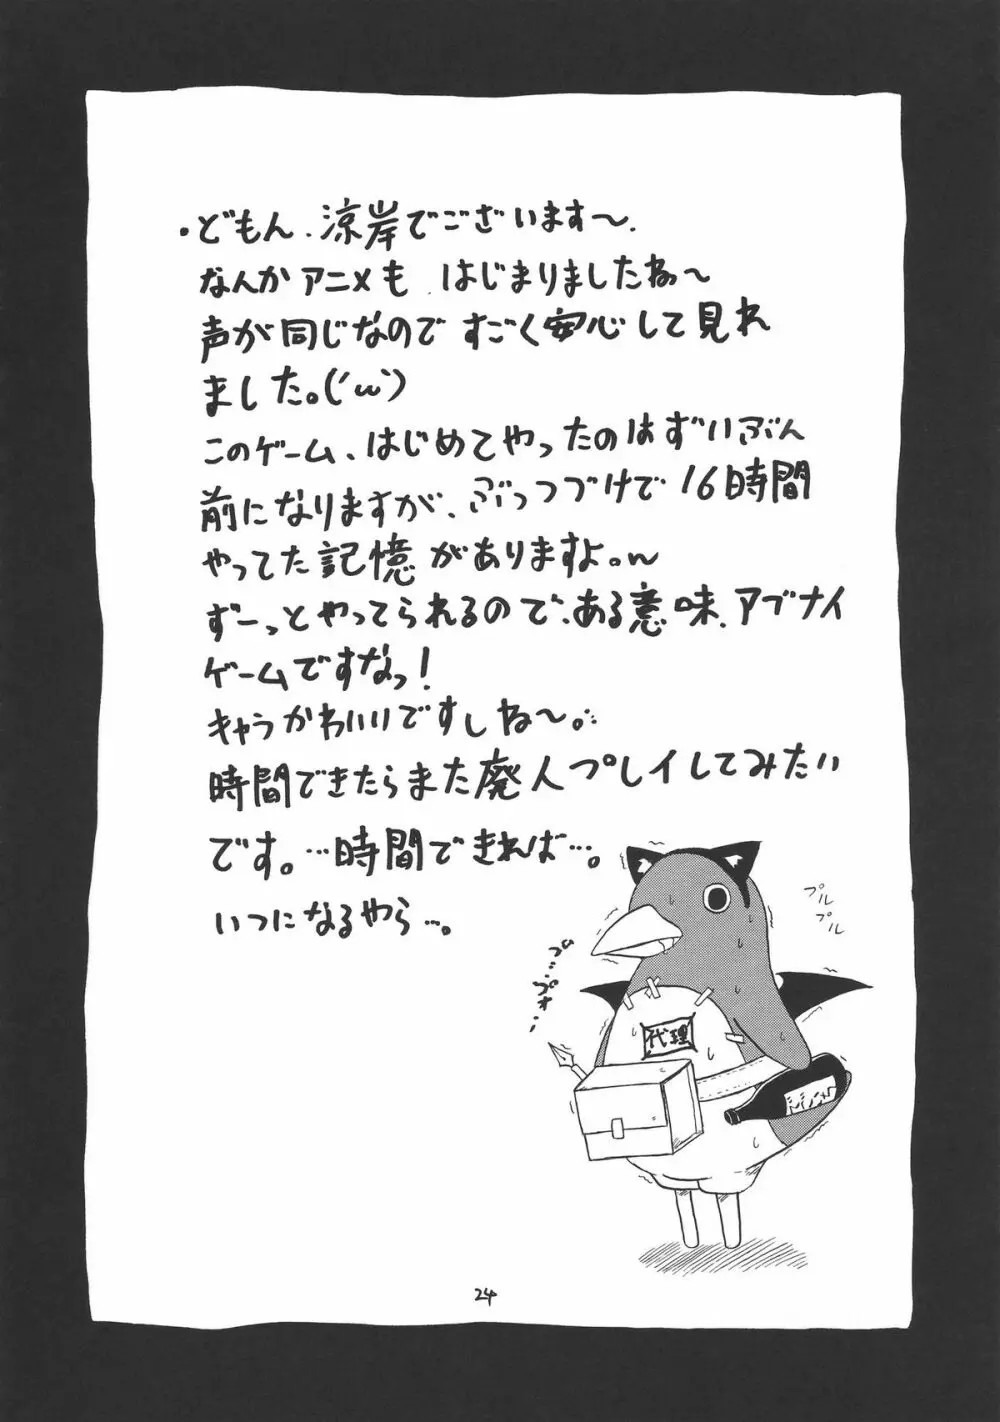 ・どもん、涼岸でございます〜。
なんかアニメも はじまりましたね〜
声が同じなので すごく安心して見れ
ました。(´ω`)
このゲーム、はじめてやったのはずいぶん
前になりますが、ぶっつづけで16時間
やってた記憶がありますよ。w
ずーっとやってられるので、ある意味、アブナイ
ゲームですなっ!
キャラかわいいですしね〜。
時間できたらまた廃人プレイしてみたい
です。…時間できれば…。
いつになるやら…。
プル
プル
プ…プォ…
代理
24